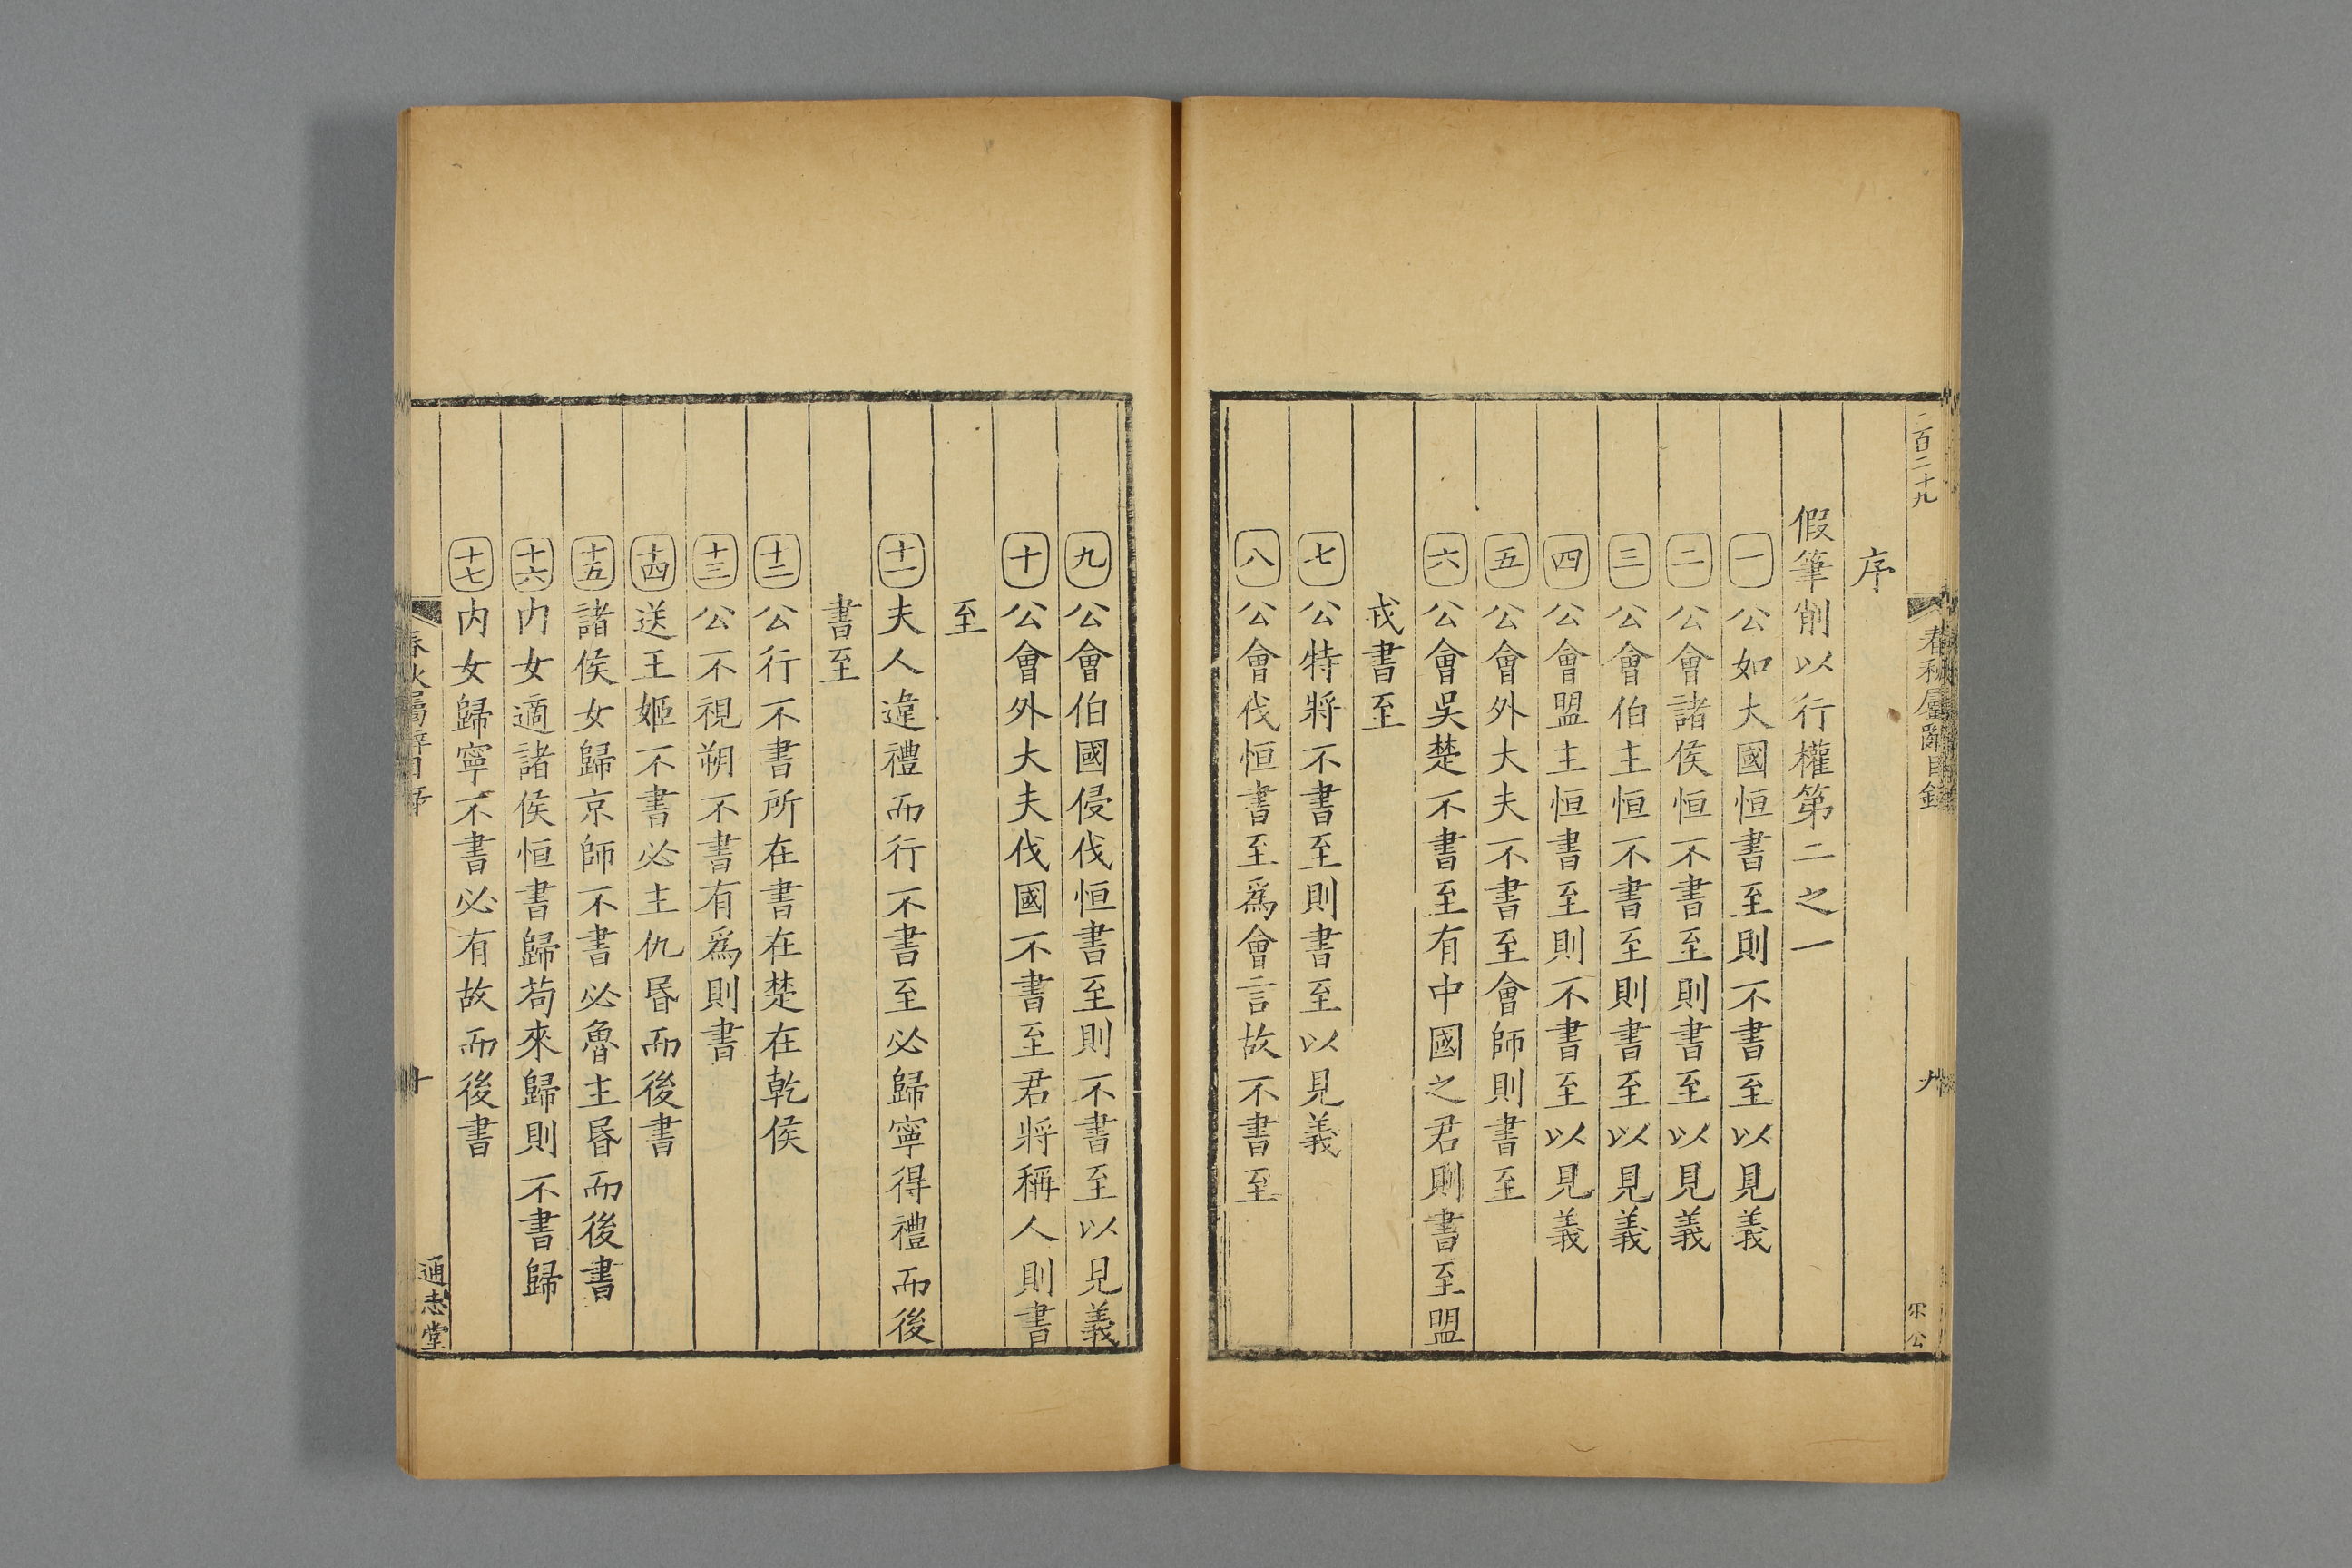 二百二十九
春秋屬辭目錄
九
公
序
假筆削以行權第二之一
一公如大國恒書至則不書至以見義
二公會諸侯恒不書至則書至以見義
三公會伯主恒不書至則書至以見義
四公會盟主恒書至則不書至以見義
五公會外大夫不書至會師則書至
六公會吳楚不書至有中國之君則書至盟
戎書至
七公特將不書至則書至以見義
八公會伐恒書至爲會言故不書至
九公會伯國侵伐恒書至則不書至以見義
十公會外大夫伐國不書至君將稱人則書
至
十一夫人違禮而行不書至必歸寧得禮而後
書至
十二公行不書所在書在楚在乾侯
十三公不視朔不書有爲則書
十四送王姬不書必主仇昏而後書
十五諸侯女歸京師不書必魯主昏而後書
十六內女適諸侯恒書歸苟來歸則不書歸
十七內女歸寧不書必有故而後書
春秋屬辭目錄
十
通志堂